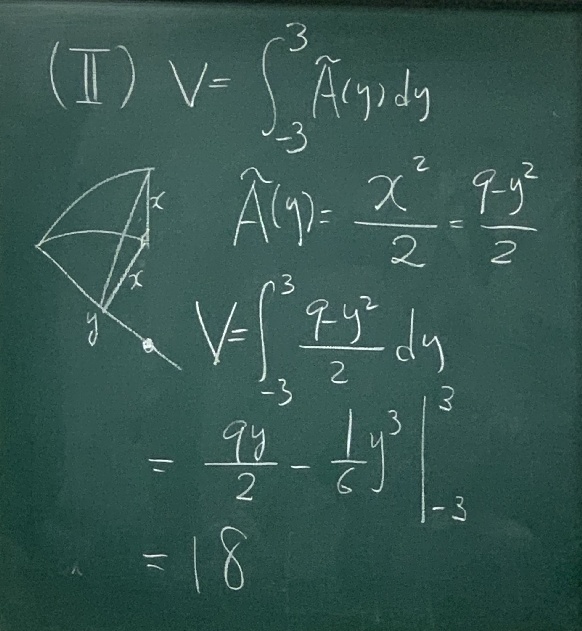 (II) V = ∫_{-3}^{3} Ã(y) dy
Ã(y) = x²/2 = (9-y²)/2
x
x
y
V = ∫_{-3}^{3} (9-y²)/2 dy
= 9y/2 - 1/6 y³ |_{-3}^{3}
= 18